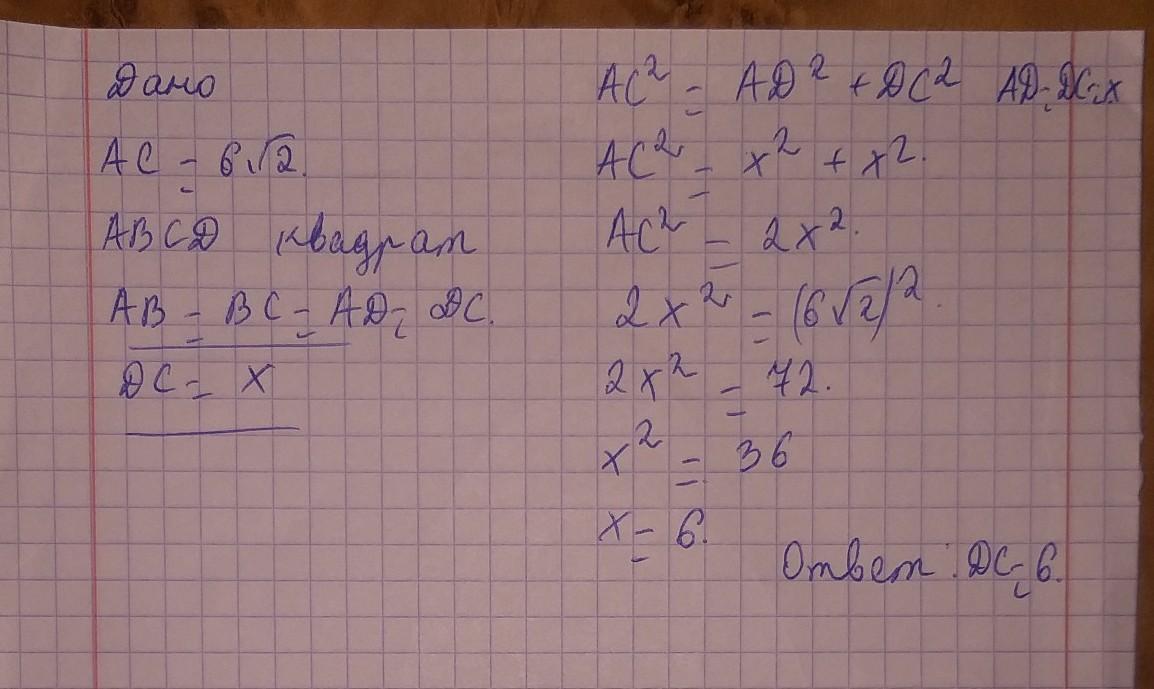 Дано
AC = 6√2.
ABCD квадрат
AB = BC = AD = DC.
DC = x
AC² = AD² + DC² AD=DC=x
AC² = x² + x².
AC² = 2x².
2x² = (6√2)².
2x² = 72.
x² = 36
x = 6.
Ответ: DC=6.